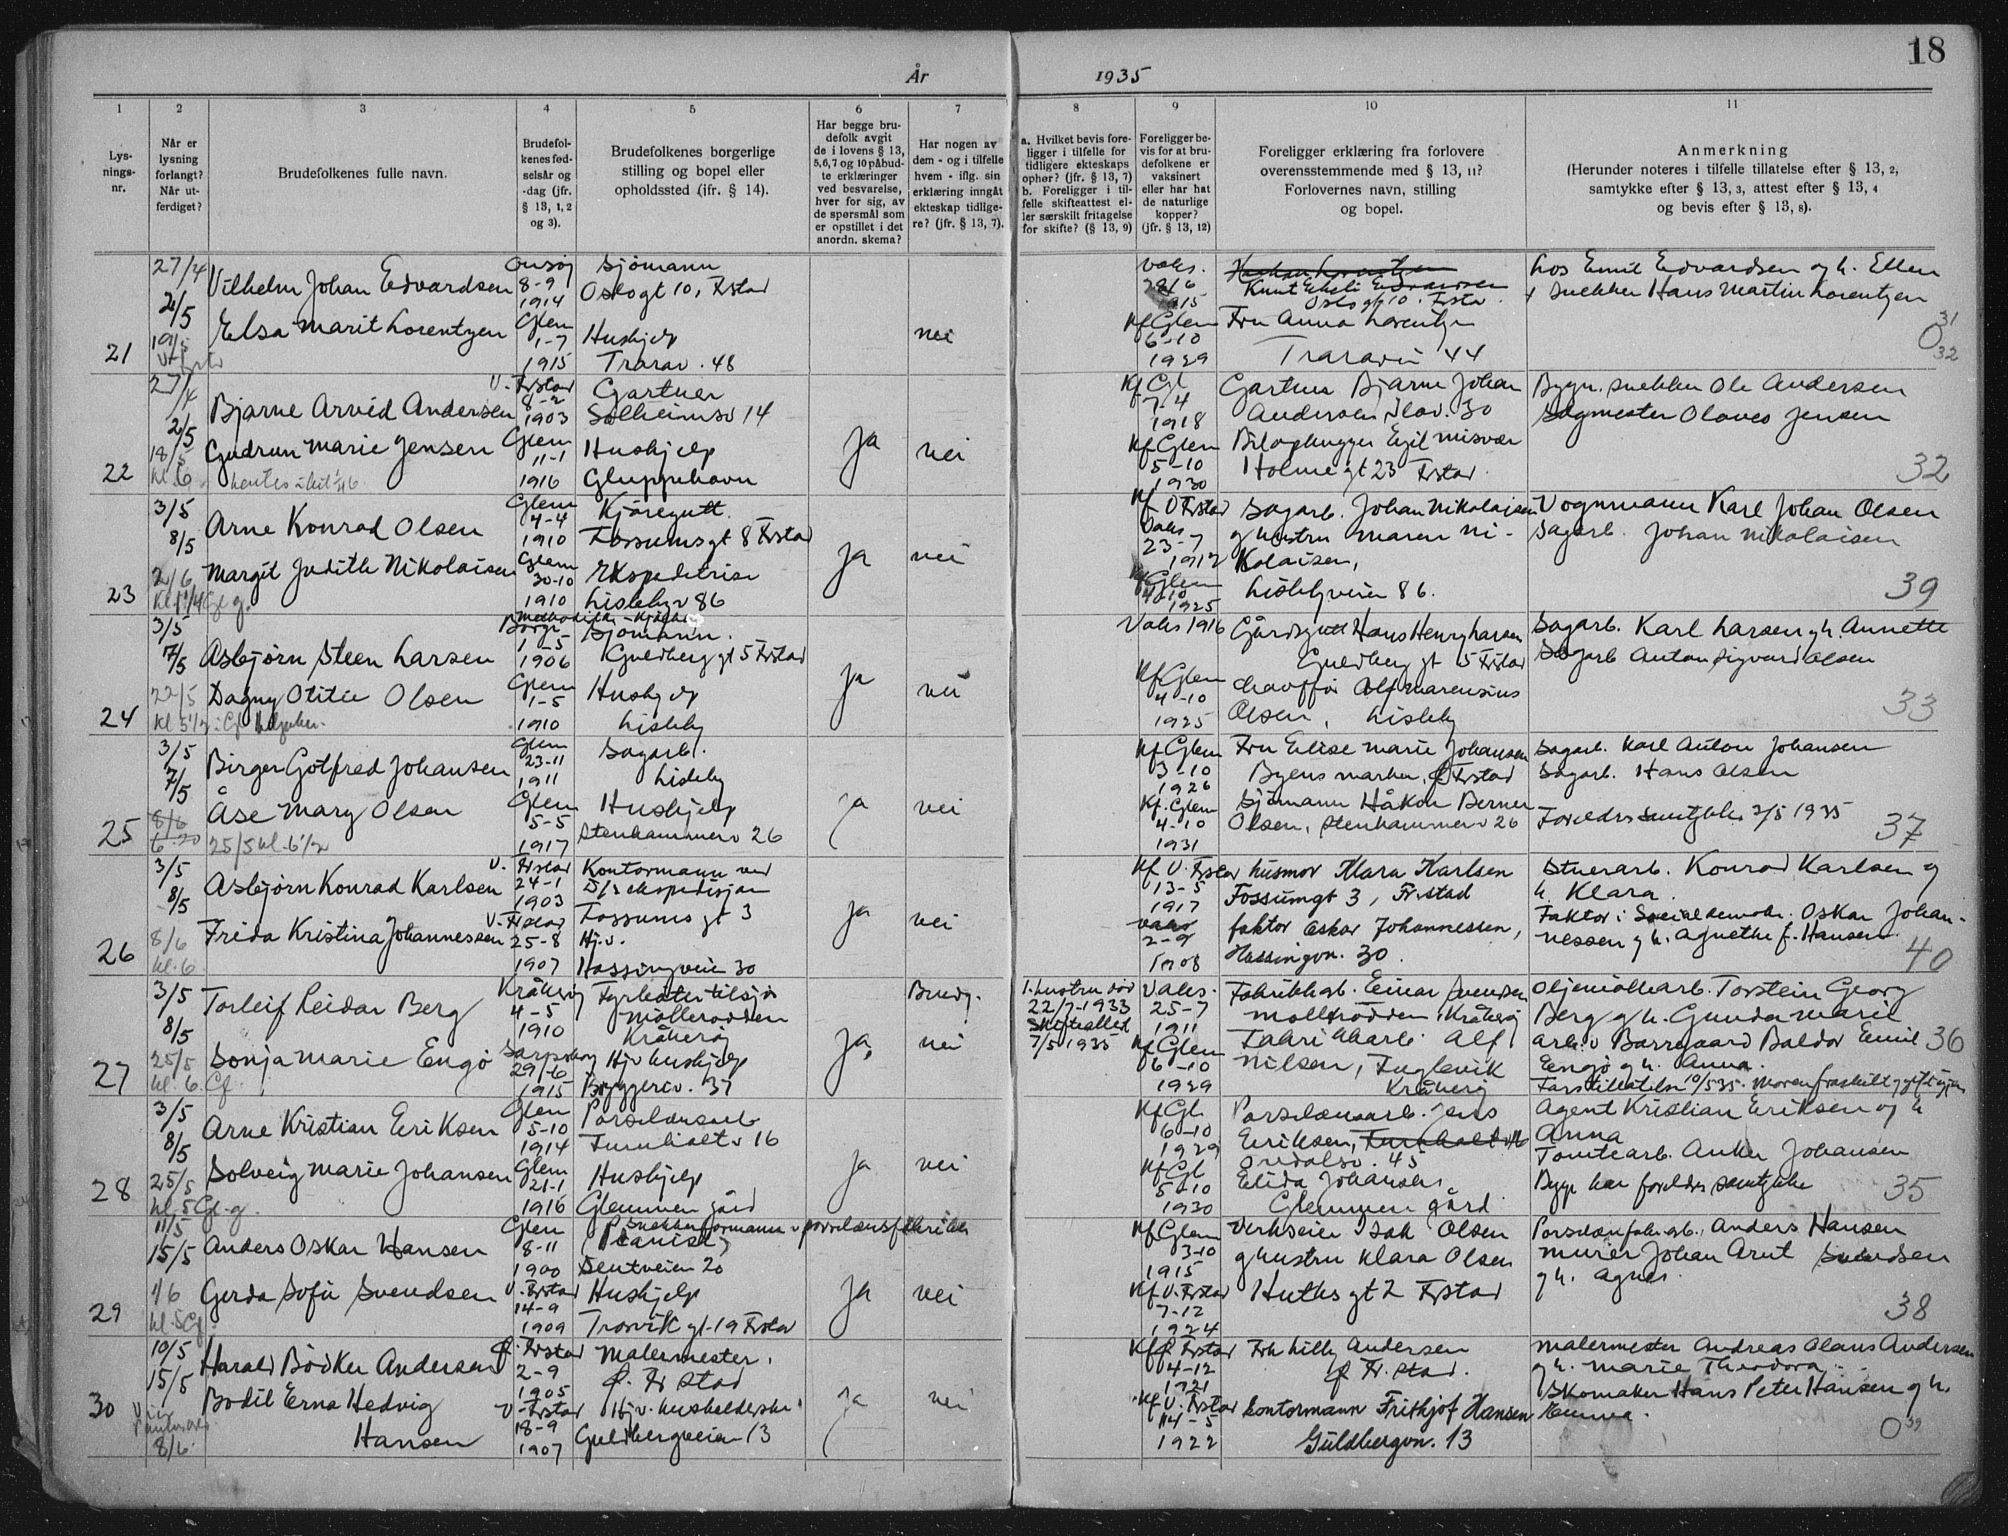 18
År 1935
1 2 3 4 5 6 7 8 9 10 11
Lys-
nings-
nr.
Når er
lysning
forlangt?
Når ut-
ferdiget?
Brudefolkenes fulle navn.
Brudefol-
kenes fød-
selsår og
-dag (jfr.
§ 13, 1, 2
og 3).
Brudefolkenes borgerlige
stilling og bopel eller
opholdssted (jfr. § 14).
Har begge bru-
defolk avgit
de i lovens § 13,
5,6,7 og 10 påbud-
te erklæringer
ved besvarelse,
hver for sig, av
de spørsmål som
er opstillet i det
anordn. skema?
Har nogen av
dem - og i tilfelle
hvem - iflg. sin
erklæring inngåt
ekteskap tidlige-
re? (jfr. § 13, 7).
a. Hvilket bevis fore-
ligger i tilfelle for
tidligere ekteskaps
ophør? (jfr. § 13, 7)
b. Foreligger i til-
felle skifteattest el-
ler særskilt fritagelse
for skifte? (§ 13, 9)
Foreligger be-
vis for at bru-
defolkene er
vaksinert
eller har hat
de naturlige
kopper?
(jfr. § 13, 12)
Foreligger erklæring fra forlovere
overensstemmende med § 13, 11?
Forlovernes navn, stilling
og bopel.
Anmerkning
(Herunder noteres i tilfelle tillatelse efter § 13, 2,
samtykke efter § 13, 3, attest efter § 13, 4
og bevis efter § 13, 8).
21
27/4
2/5
19/5
Vilhelm Johan Edvardsen
Elsa Marit Lorentzen
Onsøy
8-9
1914
Glem
1-7
1915
Sjømann
Oslogt 10, Frstad
Hushjelp
Trarav. 48
nei
Vaks.
28/6
1915
Kf Glem
6-10
1929
Oslo gt 10. Frstad.
Fru Anna Lorentzen
Traravn 44
Los Emil Edvardsen og h. Ellen
Snekker Hans Martin Lorentzen
31
0 32
22
27/4
2/5
18/5
Kl. 6
Bjarne Arvid Andersen
Gudrun Marie Jensen
V. Frstad
8-2
1903
Glem
11-1
1916
Gartner
Solheimsv 14
Hushjelp
Gluppehavn
Ja
nei
Kf Gl
7-4
1918
Kf Glem
5-10
1930
Gartner Bjarne Johan
Andersen, Ilav. 30
Bilophugger Egil Misvær
Holmegt 23 Frstad.
Bygn. snekker Ole Andersen
Sagmester Olaves Jensen
32
23
3/5
8/5
2/6
Arne Konrad Olsen
Margit Judith Nikolaisen
Glem
4-4
1910
Glem
30-10
1910
Kjøregutt.
Fossumsgt 8 Frstad
Ekspeditrise
Lislebyv 86
Ja
nei
Kf Ø Frstad
Vaks
23-7
1912
Kf Glem
4-10
1925
Sagarb. Johan Nikolaisen
g hustru Maren Ni-
kolaisen,
Lislebyveien 86.
Vognmann Karl Johan Olsen
Sagarb. Johan Nikolaisen
39
24
3/5
7/5
22/5
Kl 5 1/2
Asbjørn Steen Larsen
Dagny Otitie Olsen
Borge
1-5
1906
Glem
1-5
1910
Sjømann.
Guldberg gt 5 Frstad
Hushjelp
Lisleby
Ja
nei
Vaks 1916
Kf Glem
4-10
1925
Gårdsgutt Hans Henry Larsen
Guldberg gt 5 Frstad
Chauffør Alf Marensius
Olsen, Lisleby
Sagarb. Karl Larsen gh. Annette
Sagarb Anton Sigvard Olsen
33
25
3/5
7/5
8/6
6-20
25/5 kl. 6 1/2
Birger Gotfred Johansen
Åse Mary Olsen
Glem
23-11
1911
Glem
5-5
1917
Sagarb.
Lisleby
Hushjelp
Stenhammerv 26
Ja
nei
Kf Glem
3-10
1926
Kf. Glem
4-10
1931
Fru Elise Marie Johansen
Byens marker, Ø Frstad
Sjømann Håkon Berner
Olsen, Stenhammerv 26
Sagarb. Karl Anton Johansen
Sagarb. Hans Olsen
Foreldres samtykke 2/5 1935
37
26
3/5
8/5
8/6
kl. 6
Asbjørn Konrad Karlsen
Frida Kristina Johannessen
V. Frstad
24-1
1903
V. Frstad
25-8
1907
Kontormann ved
D/s ekspedisjon
Fossums gt 3
Hj.v.
Hassingveien 30
Ja
nei
Kf V. Frstad
13-5
1917
vaks
2-9
1908
husmor Klara Karlsen
Fossumgt 3, Fr.stad
faktor Oskar Johannessen,
Hassingvn. 30.
Stuerarb. Konrad Karlsen g
h. Klara.
Faktor i Socialdemokr. Oskar Johan-
nessen g h. Agnethe f. Hansen.
40
27
3/5
8/5
25/5
kl. 6. Gl.
Torleif Reidar Berg
Sonja Marie Engø
Kråkerøy
4-5
1910
Sarpsborg
29/6
1915
Fyrbøter tilsjø
Møllerodden
Kråkerøy
Hjv. hushjelp
Bryggeriv. 37
Ja,
Brudg.
nei
1. hustru død
22/7-1933
Skifteattest
7/5 1935
Vaks.
25-7
1911
Kf Glem
6-10
1929
Fabrikkarb. Einar Svendsen
Møllerodden, Kråkerøy
Fabrikkarb. Alf
Nilsen, Fuglevik
Kråkerøy
Oljemøllearb. Torstein Georg
Berg g h. Gunda Marie
Arb. v Borregaard Baldor Emil
Engø g h. Anna.
36
28
3/5
8/5
25/5
kl. 5 Gl. g.
Arne Kristian Eriksen
Solveig Marie Johansen
Glem
5-10
1914
Glem
21-1
1916
Porselensarb
Furuholtv 16
Hushjelp
Glemmen gård
Ja
nei
Kf Gl.
6-10
1929
Kf Gl
5-10
1930
Porselensarb. Jens
Eriksen, Furuholtv 16
Oredalsv. 45
Elida Johansen,
Glemmen gård
Agent Kristian Eriksen og h
Anna
Tomtearb. Anker Johansen
Begge har foreldres samtykke
35
29
11/5
15/5
1/6
kl. 5 Gl.
Anders Oskar Hansen
Gerda Sofie Svendsen
Glem
8-11
1900
V. Frstad
14-9
1909
Snekkerformann v porselensfabrikken
(Pianist)
Sentveien 20
Hushjelp
Trosvik gt. 19 Frstad
Ja
nei
Kf Glem
3-10
1915
Kf V. Frstad
7-12
1924
Verkseier Isak Olsen
g hustru Klara Olsen
Huths gt 2 Frstad
Porselenfabr.arb. Anders Hansen
Murer Johan Arnt Svendsen
g h. Agnes.
38
30
10/5
15/5
8/6.
Harald Bødker Andersen
Bodil Erna Hedvig
Hansen
Ø. Frstad
2-9
1905
V. Frstad
18-9
1907
Malermester,
Ø. Fr stad
Hjv. husholderske
Guldbergveien 13
Ja
nei
Kf Ø Frstad
4-12
1921
Kf V. Frstad
14-5
1922
Frk Lilly Andersen
Ø Fr. stad.
Kontormann Frithjof Hansen
Guldbergvn. 13
Malermester Andreas Olaus Andersen
g h. Marie Theodora.
Skomaker Hans Peter Hansen g h.
Emma.
0 39